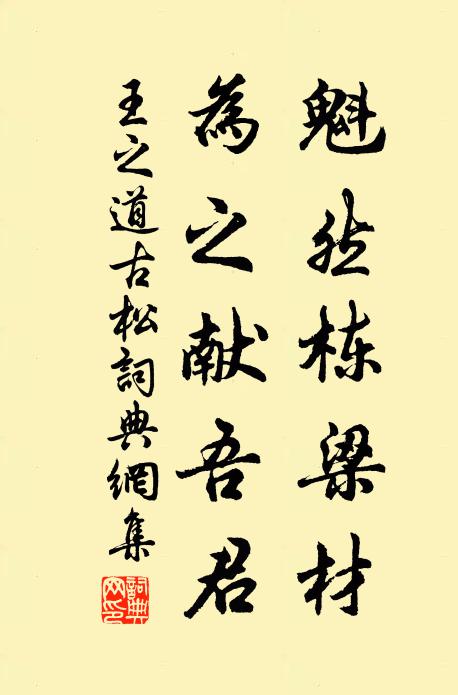 魁然栋梁材
為之献吾君
王之道古松詞典網集
詞典
网印